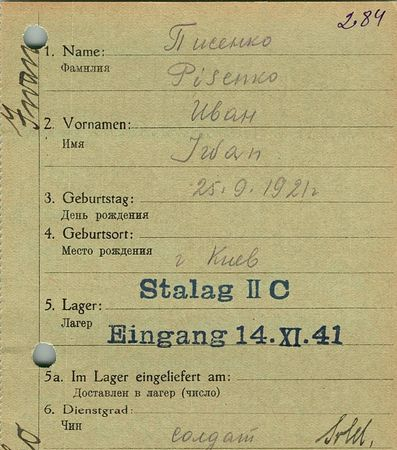 284
Писенко
1. Name:
Фамилия
Pisenko
Иван
2. Vornamen:
Имя
Iwan
25.9.1921г
3. Geburtstag:
День рождения
4. Geburtsort:
Место рождения
г Киев
Stalag II C
5. Lager:
Лагер
Eingang 14.XI.41
5a. Im Lager eingeliefert am:
Доставлен в лагер (число)
6. Dienstgrad:
Чин
солдат Sold.
Iwan